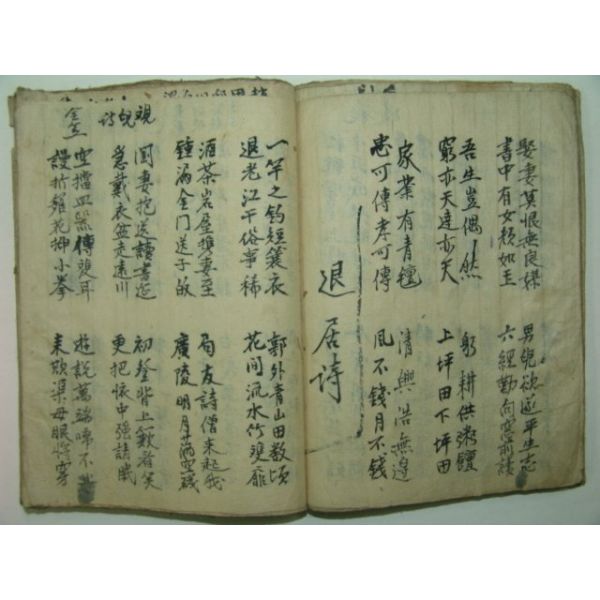 娶妻莫恨無良媒 男兒欲遂平生志
書中有女顔如玉 六經勤向窓前讀
吾生豈偶然 躬耕供粥饘
窮亦天達亦天 上坪田下坪田
家業有青氈 清興浩無邊
忠可傳孝可傳 風不錢月不錢
退居詩
一竿之釣短簑衣 郭外青山田數頃
退老江干俗事稀 花間流水竹雙扉
酒茶岩屋携妻至 局友詩僧来起我
鍾漏金門送子 廣陵明月
觀兒詩
妻抱送讀書邊 初登背上歡着笑
急戴衣盆走遠川 更把懷中强請眠
空擋血器傳雙耳 遊說萬端啼不
謾折花押小拳 来欲渠母眼將穿